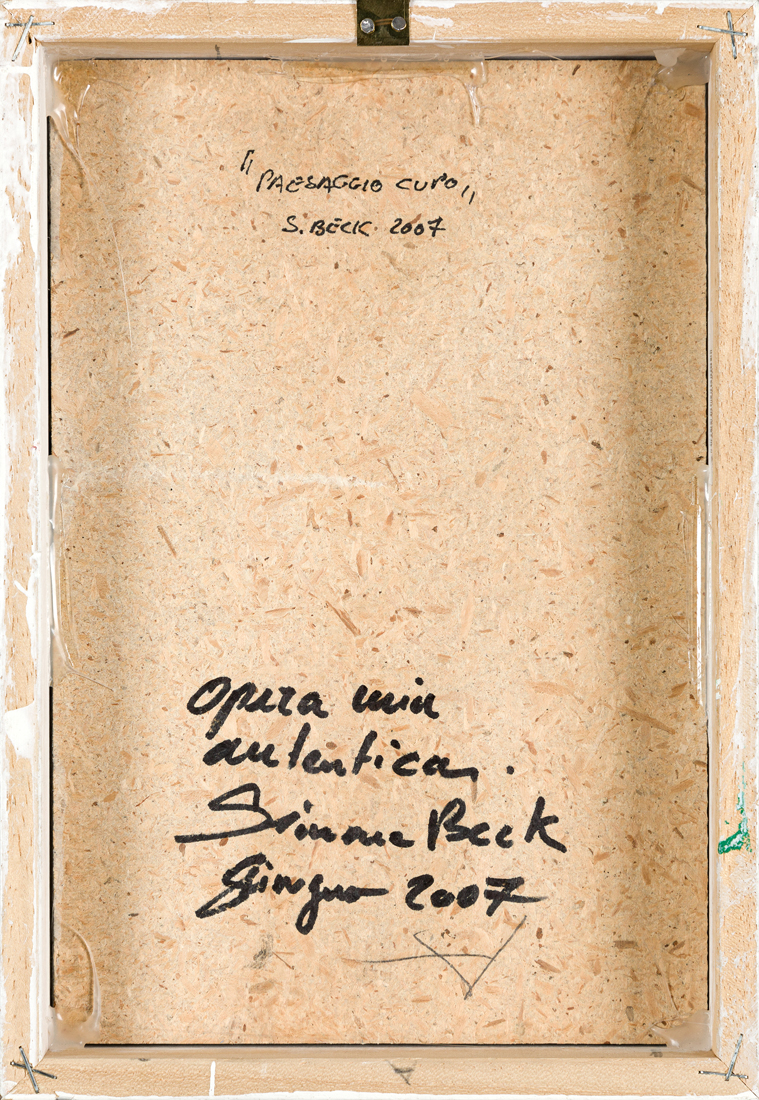 "PAESAGGIO CUPO"
S. BECK 2007
Opera mia
autentica.
Simone Beck
Giugno 2007